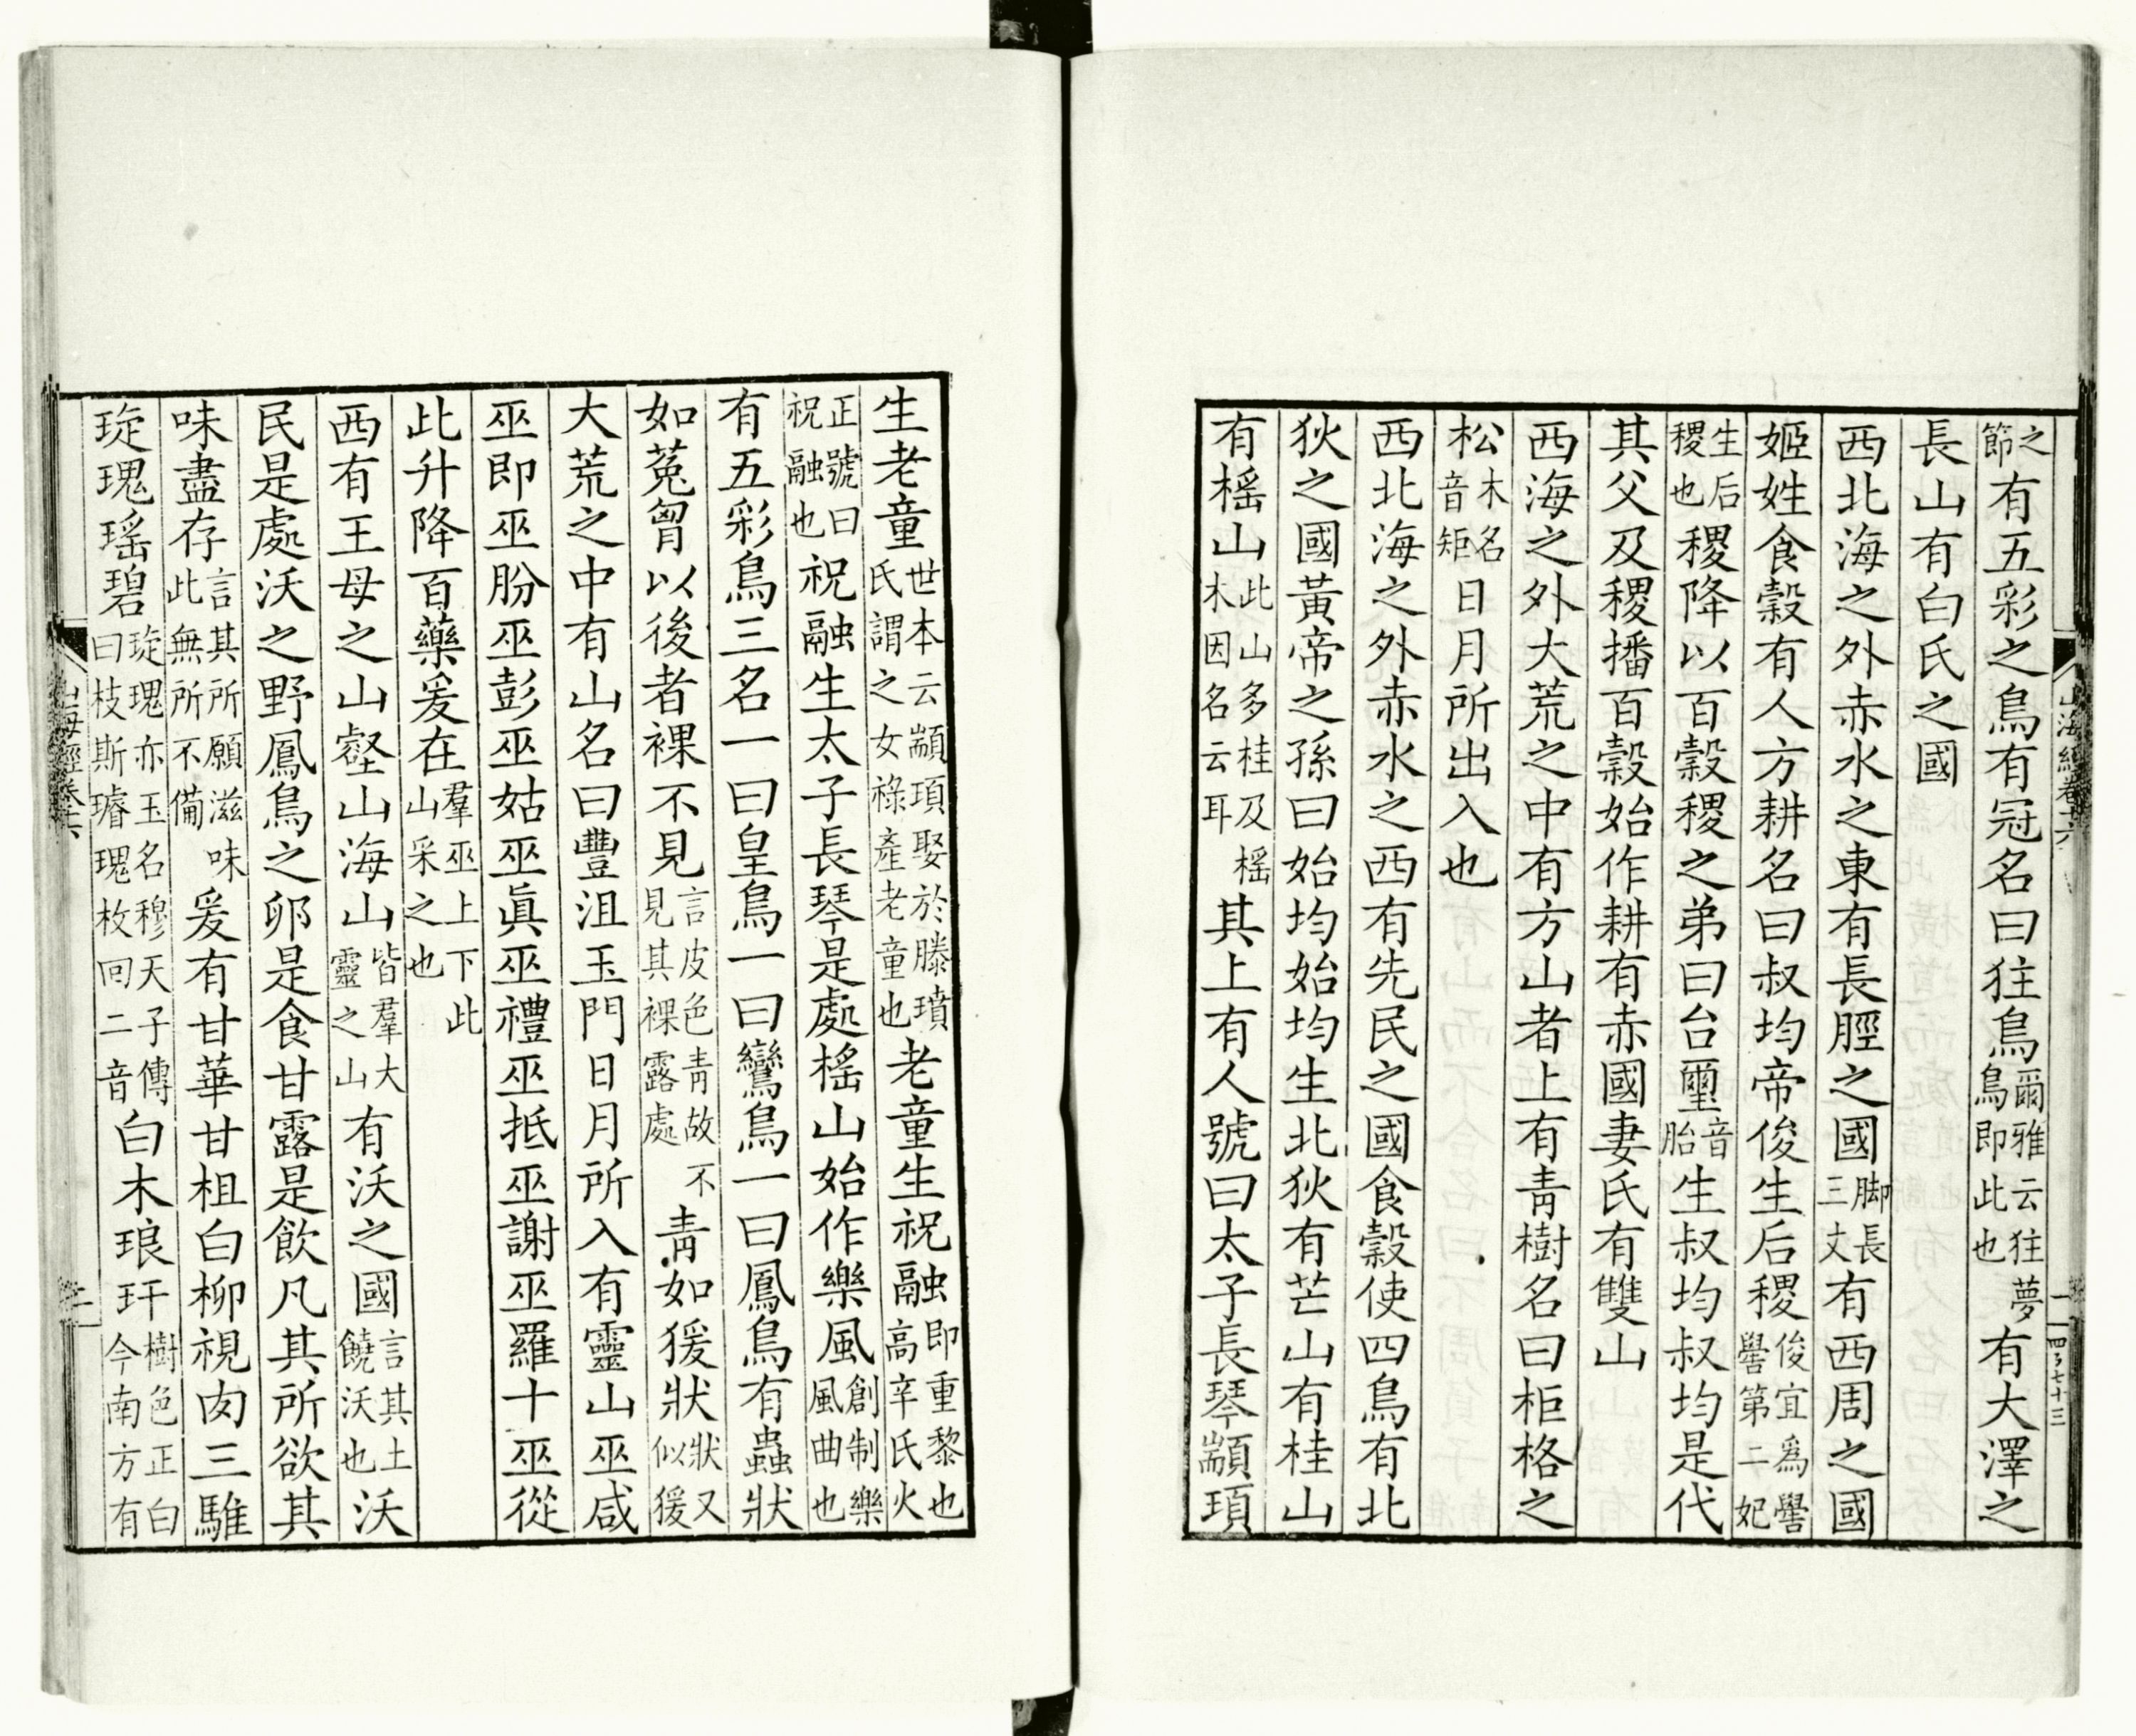 之節有五彩之鳥有冠名曰狂鳥爾雅云狂夢鳥即此也有大澤之
長山有白氏之國
西北海之外赤水之東有長脛之國脚長三丈有西周之國
姬姓食穀有人方耕名曰叔均帝俊生后稷俊宜爲嚳嚳第二妃
生后稷也稷降以百穀稷之弟曰台璽音胎生叔均叔均是代
其父及稷播百穀始作耕有赤國妻氏有雙山
西海之外大荒之中有方山者上有靑樹名曰柜格之
松木名音矩日月所出入也
西北海之外赤水之西有先民之國食穀使四鳥有北
狄之國黃帝之孫曰始均始均生北狄有芒山有桂山
有榣山此山多桂及榣木因名云耳其上有人號曰太子長琴顓頊
生老童世本云顓頊娶於滕墳氏謂之女祿產老童也老童生祝融即重黎也高辛氏火
正號曰祝融也祝融生太子長琴是處榣山始作樂風創制樂風曲也
有五彩鳥三名一曰皇鳥一曰鸞鳥一曰鳳鳥有蟲狀
如菟胷以後者裸不見言皮色靑故不見其裸露處靑如猨狀狀又似猨
大荒之中有山名曰豐沮玉門日月所入有靈山巫咸
巫即巫肦巫彭巫姑巫眞巫禮巫抵巫謝巫羅十巫從
此升降百藥爰在羣巫上下此山采之也
西有王母之山壑山海山皆羣大靈之山有沃之國言其土饒沃也沃
民是處沃之野鳳鳥之卵是食甘露是飲凡其所欲其
味盡存言其所願滋味此無所不備爰有甘華甘柤白柳視肉三騅
琁瑰瑶碧琁瑰亦玉名穆天子傳曰枝斯璿瑰枚囘二音白木琅玕樹色正白今南方有
山海經卷十六